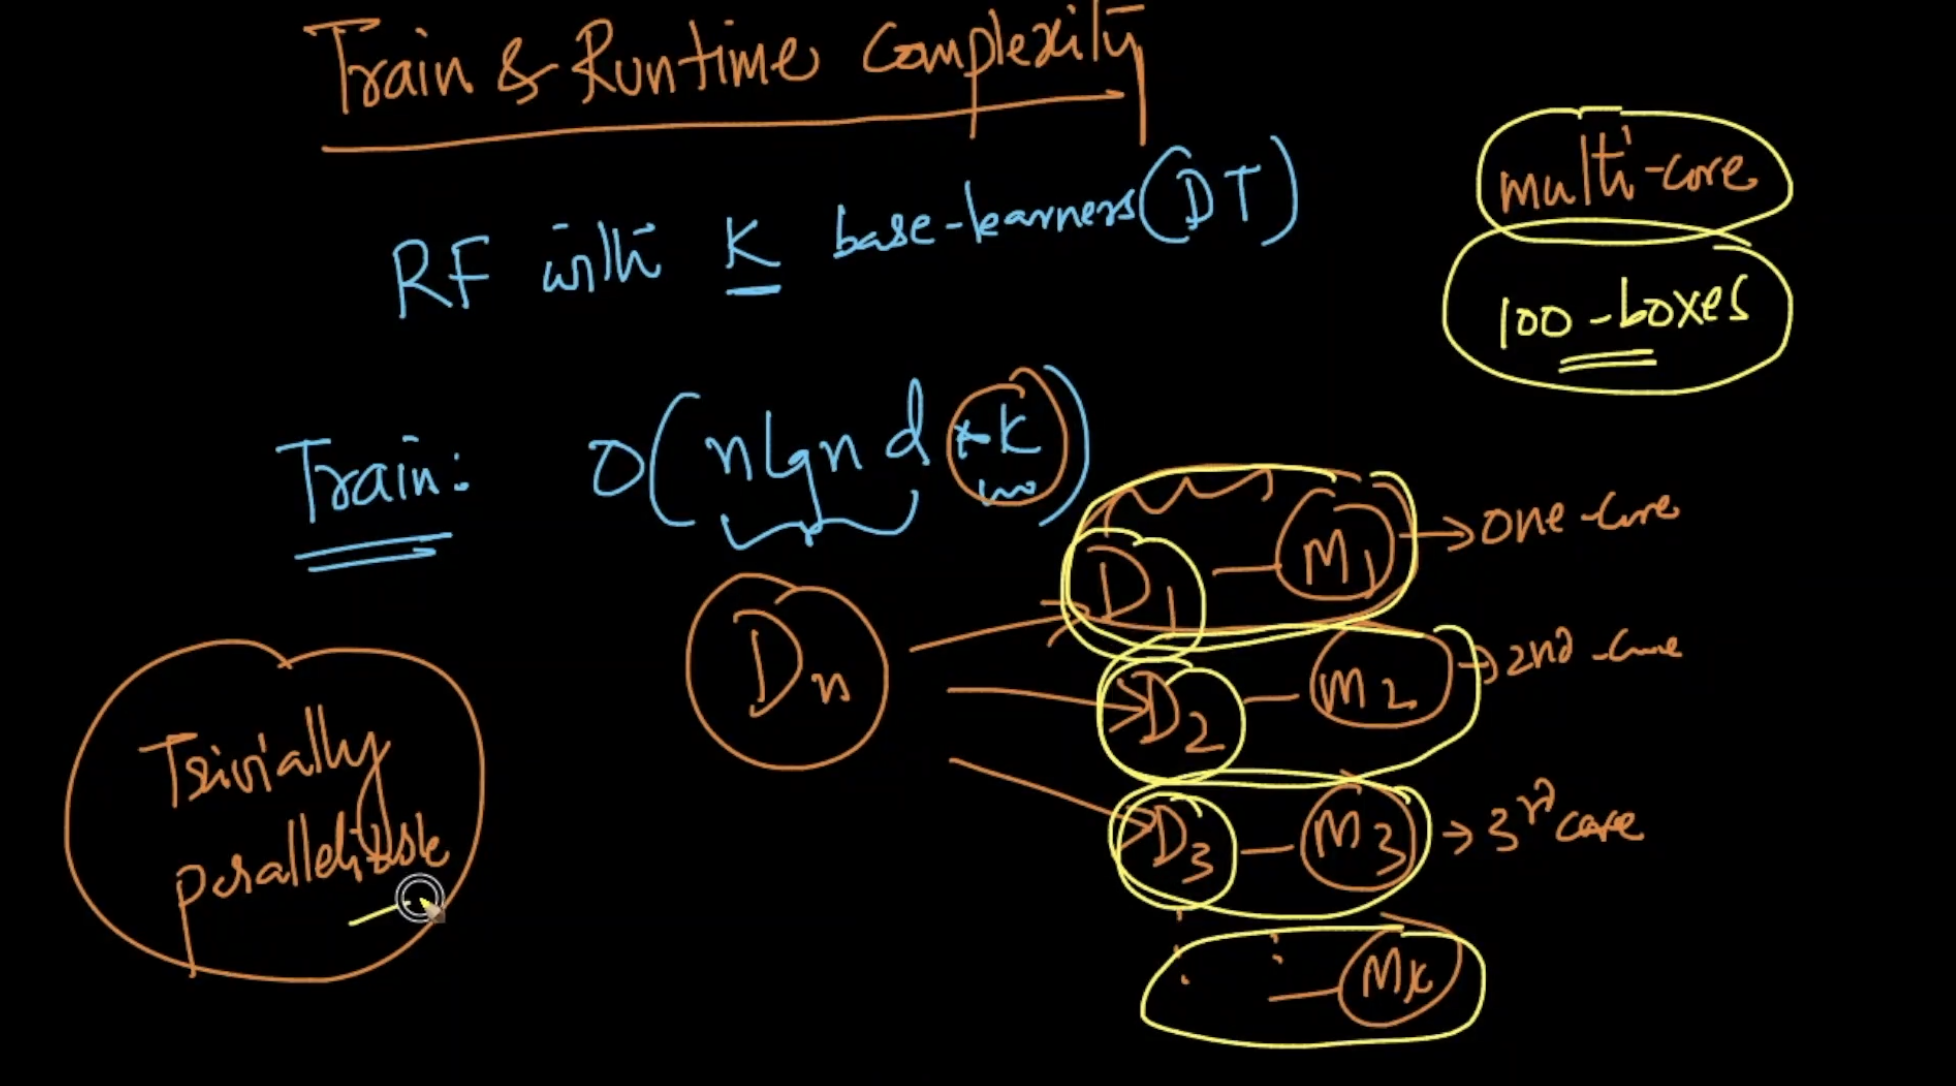 Train & Runtime Complexity
RF with K base-learners (DT)
multi-core
100-boxes
Train: O(n lg n d * k)
Dn
D1 - M1 → one-core
D2 - M2 → 2nd-core
D3 - M3 → 3rd core
- Mk
Trivially
parallelizable